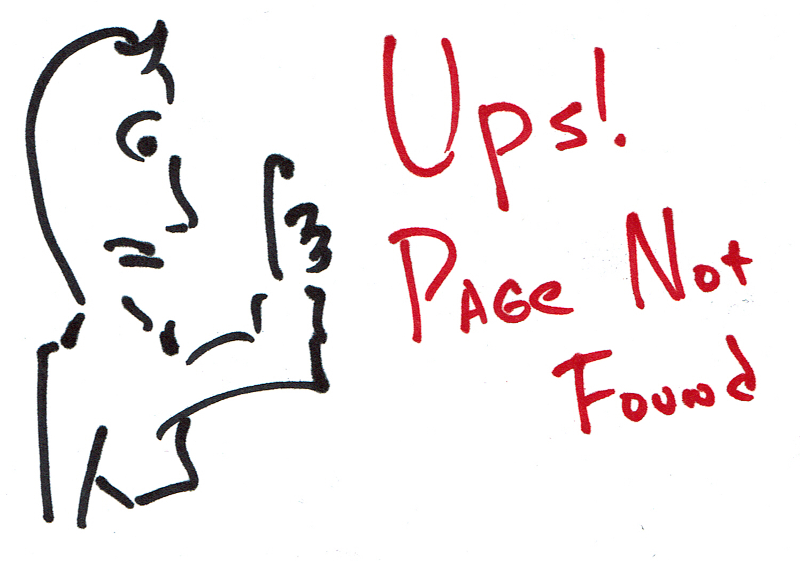 Ups!
Page Not
Found